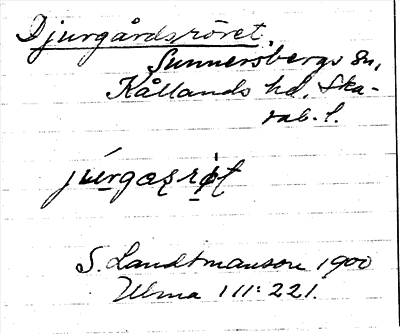 Djurgårdsröret.
Sunnersbergs sn,
Kållands hd. Ska-
rab. l.
S. Landtmanson 1900
Ulma 111:221.